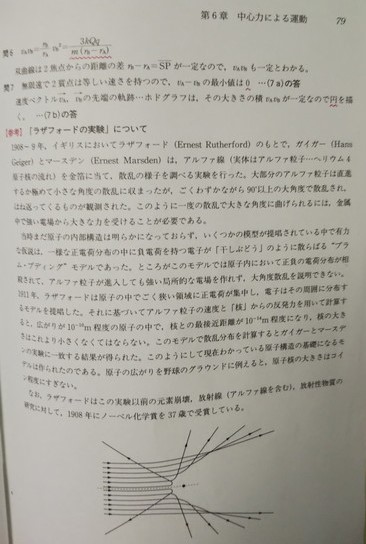 第6章 中心力による運動 79
問6 v_A v_B = r_B/r_A v_B² = 3kQq/m(r_B−r_A)
双曲線は2焦点からの距離の差 r_B−r_A=SPが一定なので、v_A v_Bも一定とわかる。
問7 無限遠で2質点は等しい速さを持つので、v_A−v_Bの最小値は0 …(7a)の答
速度ベクトルv_A, v_Bの先端の軌跡…ホドグラフは、その大きさの積v_A v_Bが一定なので円を描
く。…(7b)の答
【参考】「ラザフォードの実験」について
1908−9年、イギリスにおいてラザフォード(Ernest Rutherford)のもとで、ガイガー(Hans
Geiger)とマースデン(Ernest Marsden)は、アルファ線(実体はアルファ粒子…ヘリウム4
原子核の流れ)を金箔に当て、散乱の様子を調べる実験を行った。大部分のアルファ粒子は直進
するか極めて小さな角度の散乱に収まったが、ごくわずかながら90°以上の大角度で散乱され、
はね返ってくるものが観測された。このように一度の散乱で大きな角度に曲げられるには、金属
中で強い電場から大きな力を受けることが必要である。
当時まだ原子の内部構造は明らかになっておらず、いくつかの模型が提唱されている中で有力
な仮説は、一様な正電荷分布の中に負電荷を持つ電子が「干しぶどう」のように散らばる“プラ
ム・プディング”モデルであった。ところがこのモデルでは原子内において正負の電荷分布が相
殺されて、アルファ粒子が進入しても強い局所的な電場を作れず、大角度散乱を説明できない。
1911年、ラザフォードは原子の中でごく狭い領域に正電荷が集中し、電子はその周囲に分布す
るモデルを提唱した。それに基づいてアルファ粒子の速度と「核」からの反発力を用いて計算す
ると、広がりが10⁻¹⁰m程度の原子の中で、核との最接近距離が10⁻¹⁴m程度になり、核の大き
さはこれより小さくなくてはならない。このモデルで散乱分布を計算するとガイガーとマースデ
ンの実験に一致する結果が得られた。このようにして現在わかっている原子構造の基礎になるモ
デルは作られたのである。原子の広がりを野球のグラウンドに例えると、原子核の大きさはコイ
ン程度にすぎない。
なお、ラザフォードはこの実験以前の元素崩壊、放射線(アルファ線を含む)、放射性物質の
研究に対して、1908年にノーベル化学賞を37歳で受賞している。